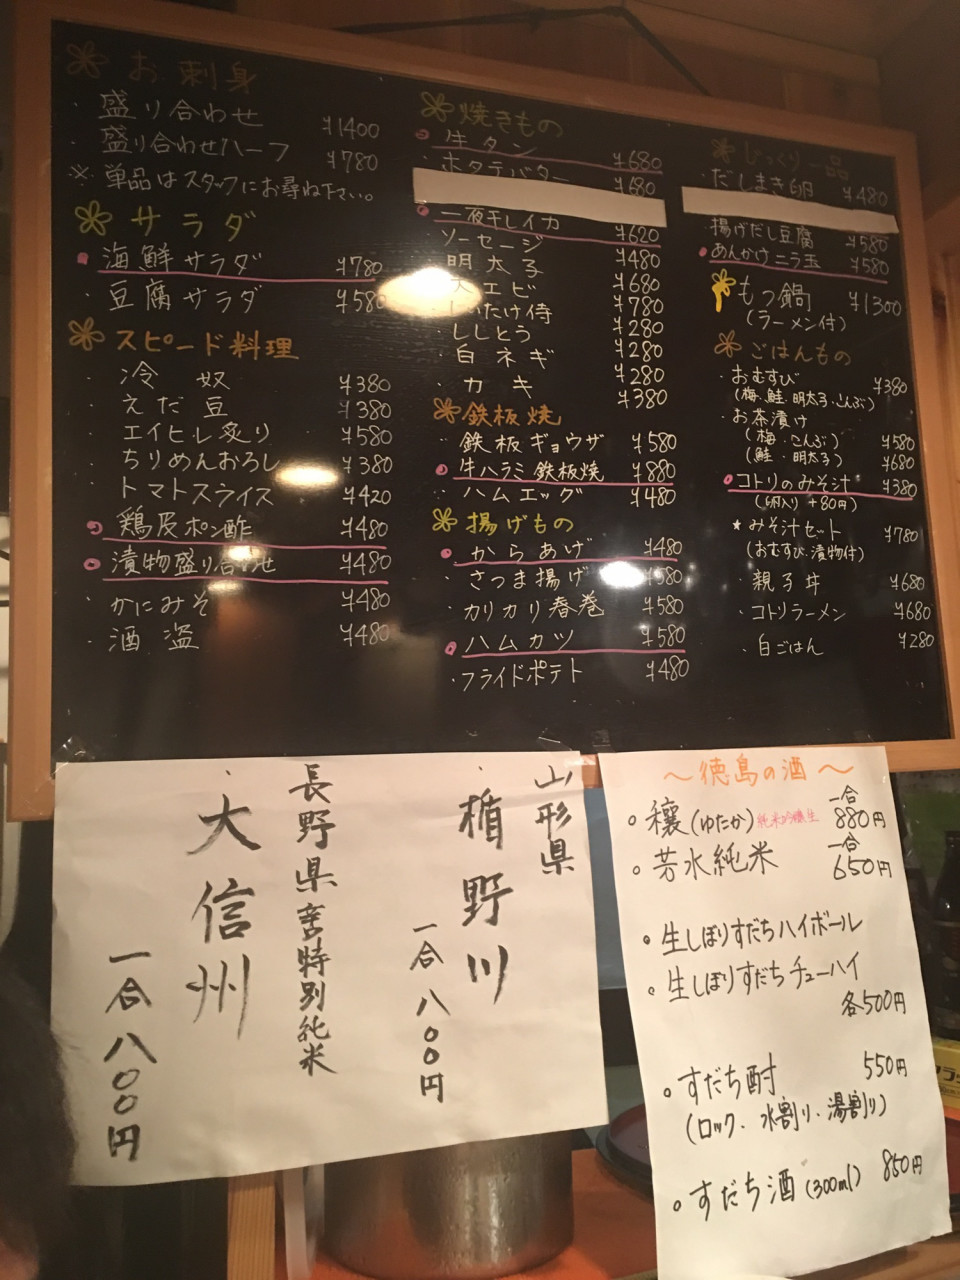 お刺身
・盛り合わせ ¥1400
・盛り合わせハーフ ¥780
※単品はスタッフにお尋ね下さい。
サラダ
海鮮サラダ ¥780
・豆腐サラダ ¥580
スピード料理
・冷奴 ¥380
・えだ豆 ¥380
・エイヒレ炙り ¥580
・ちりめんおろし ¥380
・トマトスライス ¥420
鶏皮ポン酢 ¥480
漬物盛り合わせ ¥480
・かにみそ ¥480
・酒盗 ¥480
焼きもの
牛タン ¥680
・ホタテバター ¥680
一夜干しイカ ¥620
・ソーセージ ¥480
・明太子 ¥680
エビ ¥780
たけ侍 ¥280
・ししとう ¥280
・白ネギ ¥280
・カキ ¥380
鉄板焼
・鉄板ギョウザ ¥580
牛ハラミ鉄板焼 ¥880
・ハムエッグ ¥480
揚げもの
からあげ ¥480
・さつま揚げ ¥580
・カリカリ春巻 ¥580
ハムカツ ¥580
・フライドポテト ¥480
じっくり一品
・だしまき卵 ¥480
揚げだし豆腐 ¥580
あんかけニラ玉 ¥580
もつ鍋 ¥1300
(ラーメン付)
ごはんもの
・おむすび ¥380
(梅.鮭.明太子.こんぶ)
・お茶漬け
(梅.こんぶ) ¥580
(鮭.明太子) ¥680
コトリのみそ汁 ¥380
(卵入り +80円)
★みそ汁セット ¥780
(おむすび.漬物付)
・親子丼 ¥680
・コトリラーメン ¥680
・白ごはん ¥280
山形県
・楯野川
一合 八〇〇円
長野県 特別純米
・大信州
一合 八〇〇円
〜徳島の酒〜
穰(ゆたか)純米吟醸生 一合 880円
芳水純米 一合 650円
生しぼりすだちハイボール
生しぼりすだちチューハイ
各500円
すだち酎 550円
(ロック、水割り、湯割り)
すだち酒(300ml) 850円